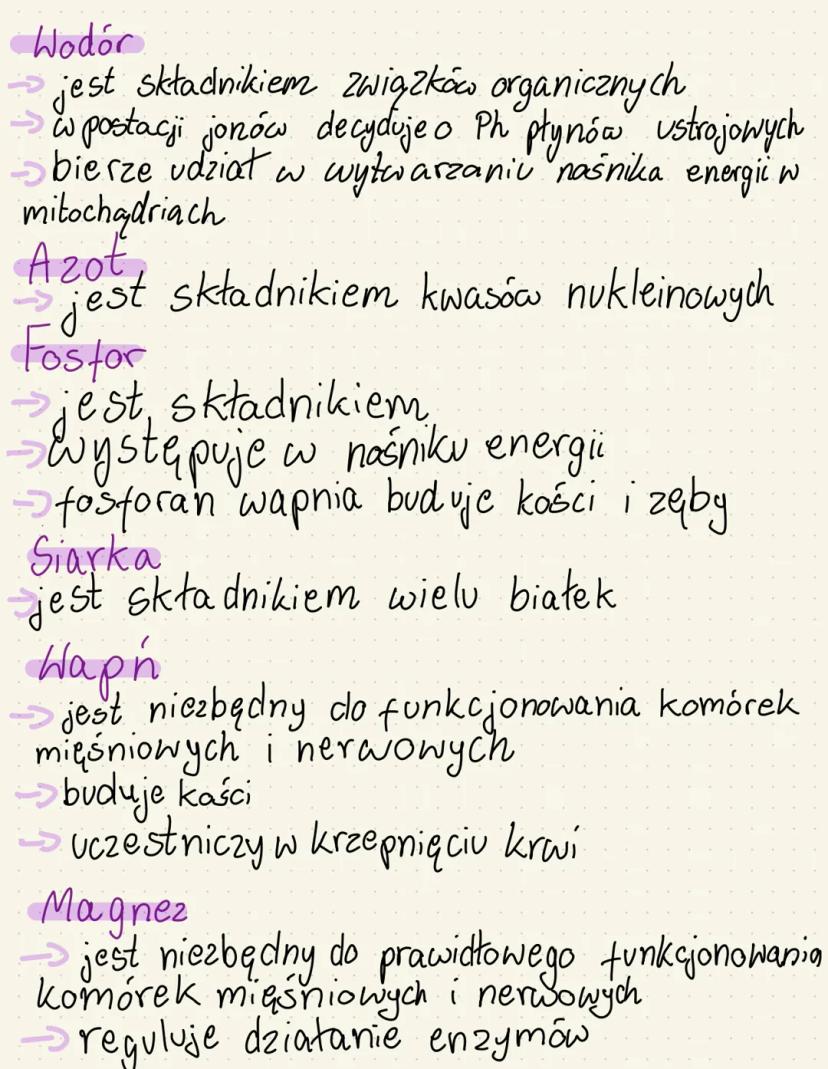 Wodór
→ jest składnikiem związków organicznych
→ w postacji jonów decyduje o Ph płynów ustrojowych
→ bierze udział w wytwarzaniu nośnika energii w
mitochądriach
Azot
→ jest składnikiem kwasów nukleinowych
Fosfor
→ jest składnikiem
→ występuje w nośniku energii
→ fosforan wapnia buduje kości i zęby
Siarka
→ jest składnikiem wielu białek
Wapń
→ jest niezbędny do funkcjonowania komórek
mięśniowych i nerwowych
→ buduje kości
→ uczestniczy w krzepnięciu krwi
Magnez
→ jest niezbędny do prawidłowego funkcjonowania
komórek mięśniowych i nerwowych
→ reguluje działanie enzymów